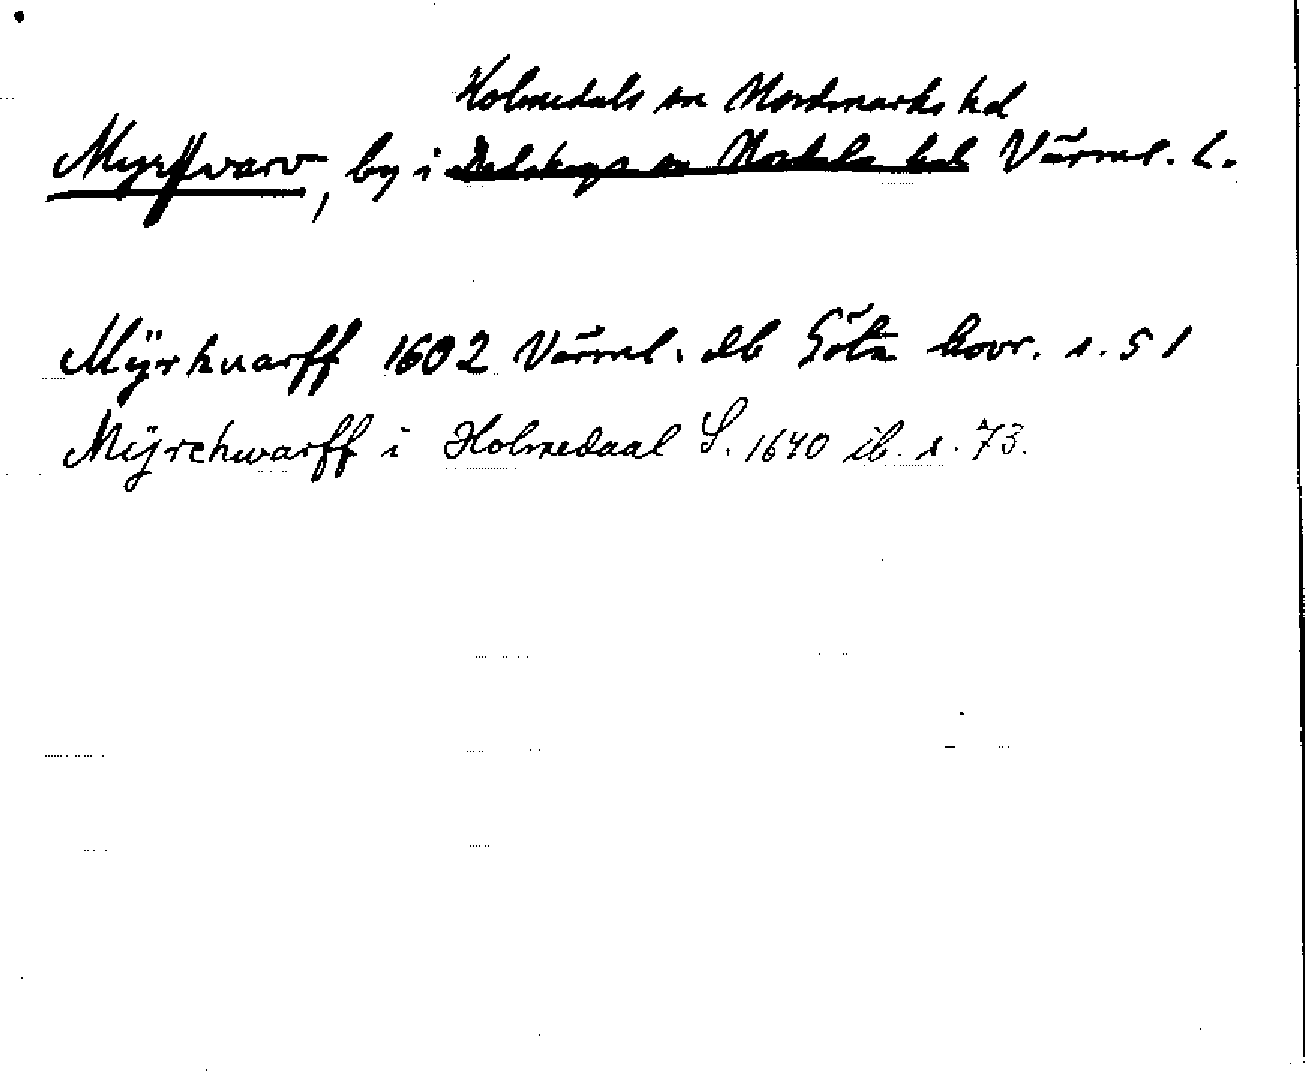 Holmedals sn Nordmarks hd
Myrhvarv, by i Dalskogs sn Nordals hd Värml. l.
Mÿrhuarff 1602 Värml. db Göta hovr. s. 51
Mÿrchwarff i Holmedaal S. 1640 ib. s. 73.